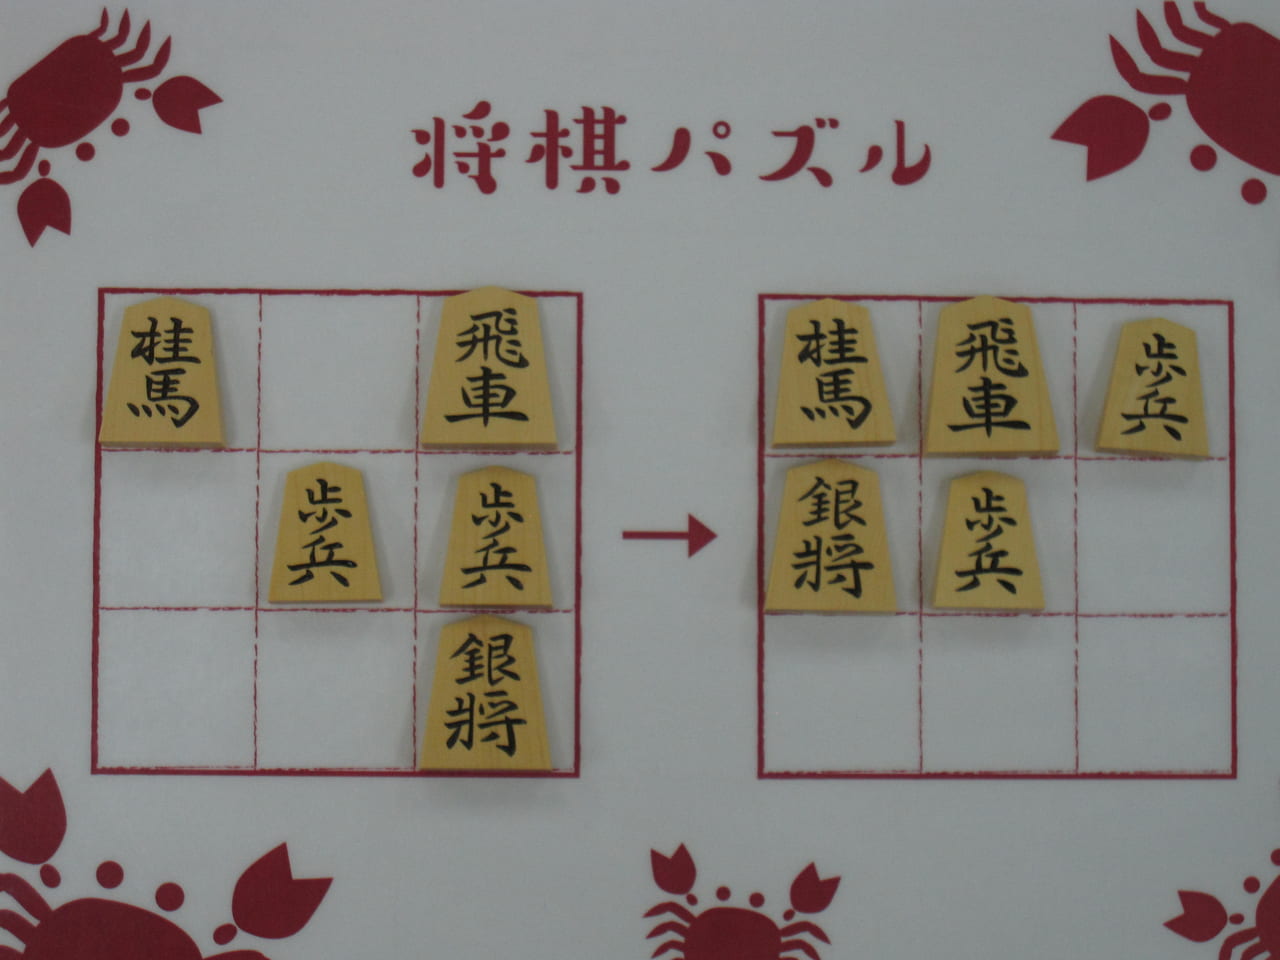 将棋パズル
桂馬 飛車 桂馬 飛車 歩兵
歩兵 歩兵 銀将 歩兵
銀将